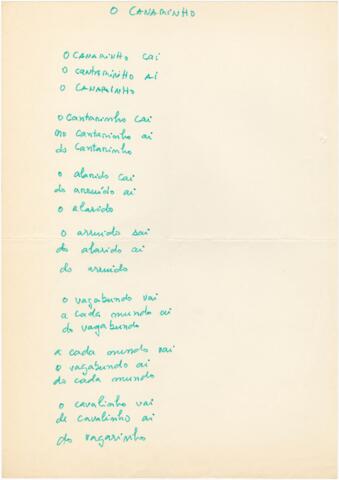 O CANARINHO
O CANARINHO CAI
O CANTARINHO AÍ
O CANARINHO
o cantarinho cai
no cantarinho ai
do cantarinho
o alarido cai
do arruído ai
o alarido
o arruído sai
do alarido ai
do arruído
o vagabundo vai
a cada mundo ai
do vagabundo
a cada mundo vai
o vagabundo ai
do cada mundo
o cavalinho vai
de cavalinho ai
do vagarinho